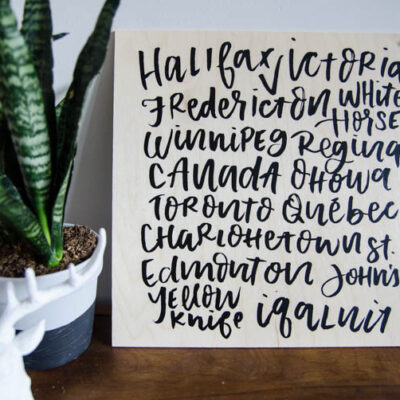 Halifax Victoria
Fredericton White
Horse
Winnipeg Regina
CANADA Ottawa
Toronto Québec
Charlottetown St.
Edmonton John's
Yellow
Knife iqaluit